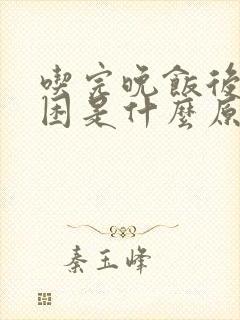 喫完晚飯後
困是什麼原
秦玉峰